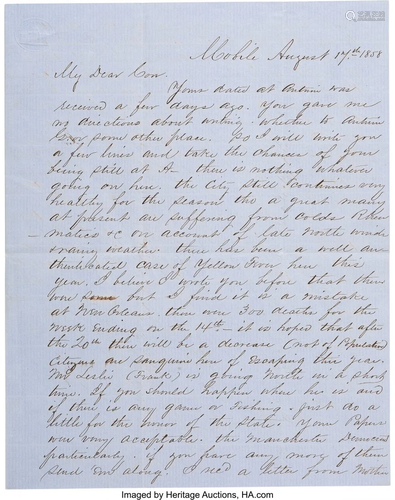 Mobile August 17th 1858
My Dear Con.
Yours dated at Antrim was
received a few days ago. You gave me
no directions about writing whether to Antrim
or some other place. So I will write you
a few lines and take the chances of your
being still at A— there is nothing whatever
going on here. the City still continues very
healthy for the season tho a great many
at present are suffering from Colds Rheu
matics &c on account of late North winds
& rainy weather there has been a well au
thenticated case of Yellow Fever here this
year. I believe I wrote you before that there
were some but I find it is a mistake
at New Orleans. there were 300 deaths for the
week Ending on the 14th — it is hoped that after
the 20th there will be a decrease (not of Population)
Citizens are sanguine here of Escaping this year.
Mr Leslie (Frank) is going North in a short
time. If you should happen where he is and
if there is any game or Fishing. just do a
little for the honor of the State. Your Papers
were very acceptable. the Manchester Democrat
particularly. if you have any more of them
send Em along. I rec'd a letter from Mother
Imaged by Heritage Auctions, HA.com